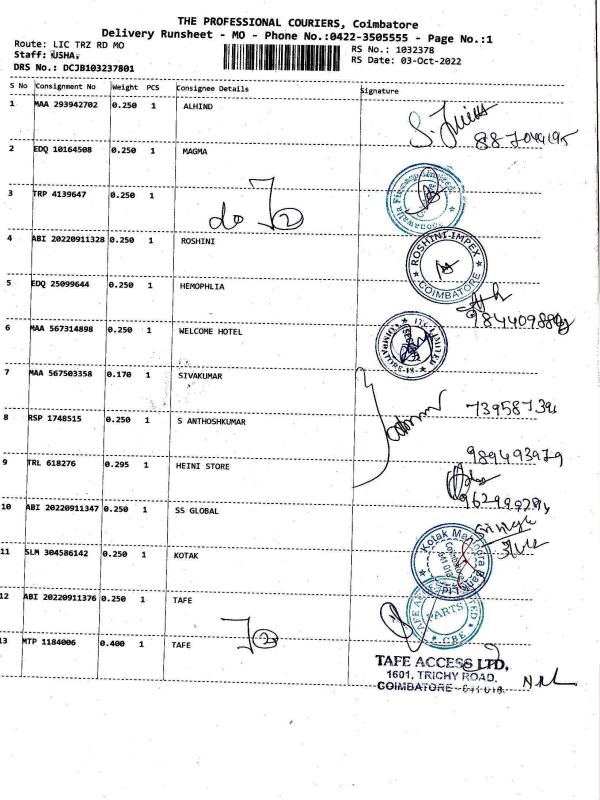 THE PROFESSIONAL COURIERS, Coimbatore
Delivery Runsheet - MO - Phone No.:0422-3505555 - Page No.:1
Route: LIC TRZ RD MO RS No.: 1032378
Staff: USHA. RS Date: 03-Oct-2022
DRS No.: DCJB103237801
S No Consignment No Weight PCS Consignee Details Signature
1 MAA 293942702 0.250 1 ALHIND
2 EDQ 10164508 0.250 1 MAGMA
3 TRP 4139647 0.250 1
do
4 ABI 20220911328 0.250 1 ROSHINI
ROSHINI-IMPEX
COIMBATORE
5 EDQ 25099644 0.250 1 HEMOPHLIA
6 MAA 567314898 0.250 1 WELCOME HOTEL
7 MAA 567503358 0.170 1 SIVAKUMAR
8 RSP 1748515 0.250 1 S ANTHOSHKUMAR
9 TRL 618276 0.295 1 HEINI STORE
10 ABI 20220911347 0.250 1 SS GLOBAL
11 SLM 304586142 0.250 1 KOTAK
Kotak Mahindra
12 ABI 20220911376 0.250 1 TAFE
PARTS
CBE
13 MTP 1184006 0.400 1 TAFE
TAFE ACCESS LTD,
1601, TRICHY ROAD,
COIMBATORE - 641 018.